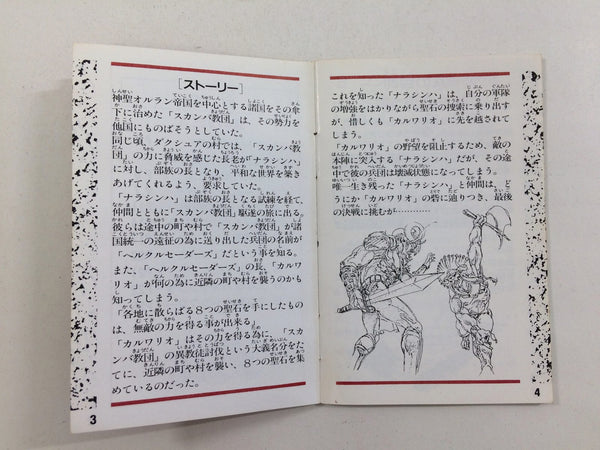 ［ストーリー］
神聖オルラン帝国を中心とする諸国をその傘
下に治めた「スカンバ教団」は、その勢力を
他国にものばそうとしていた。
同じ頃、ダクシュアの村では、「スカンバ教
団」の力に脅威を感じた長老が「ナラシンハ」
に対し、部族の長となり、平和な世界を築き
あげてくれるよう、要求していた。
「ナラシンハ」は部族の長となる試練を経て、
仲間とともに「スカンバ教団」駆逐の旅に出る。
彼らは途中の町や村で「スカンバ教団」が諸
国統一の遠征の為に送り出した兵団の名前が
「ヘルクルセーダーズ」だという事を知る。
また、「ヘルクルセーダーズ」の長、「カルワ
リオ」が何の為に近隣の町や村を襲うのかも
知ってしまう。
「各地に散らばる８つの聖石を手にしたもの
は、無敵の力を得る事が出来る」
「カルワリオ」はその力を得る為に、「スカ
ンバ教団」の異教徒討伐という大義名分をた
てに、近隣の町や村を襲い、８つの聖石を集
めているのだった。
3
これを知った「ナラシンハ」は、自分の軍隊
の増強をはかりながら聖石の捜索に乗り出す
が、惜しくも「カルワリオ」に先を越されて
しまう。
「カルワリオ」の野望を阻止するため、敵の
本陣に突入する「ナラシンハ」だが、その途
中で彼の兵団は壊滅状態になってしまう。
唯一生き残った「ナラシンハ」と仲間は、ど
うにか「カルワリオ」の砦に辿りつき、最後
の決戦に挑むが…………
4